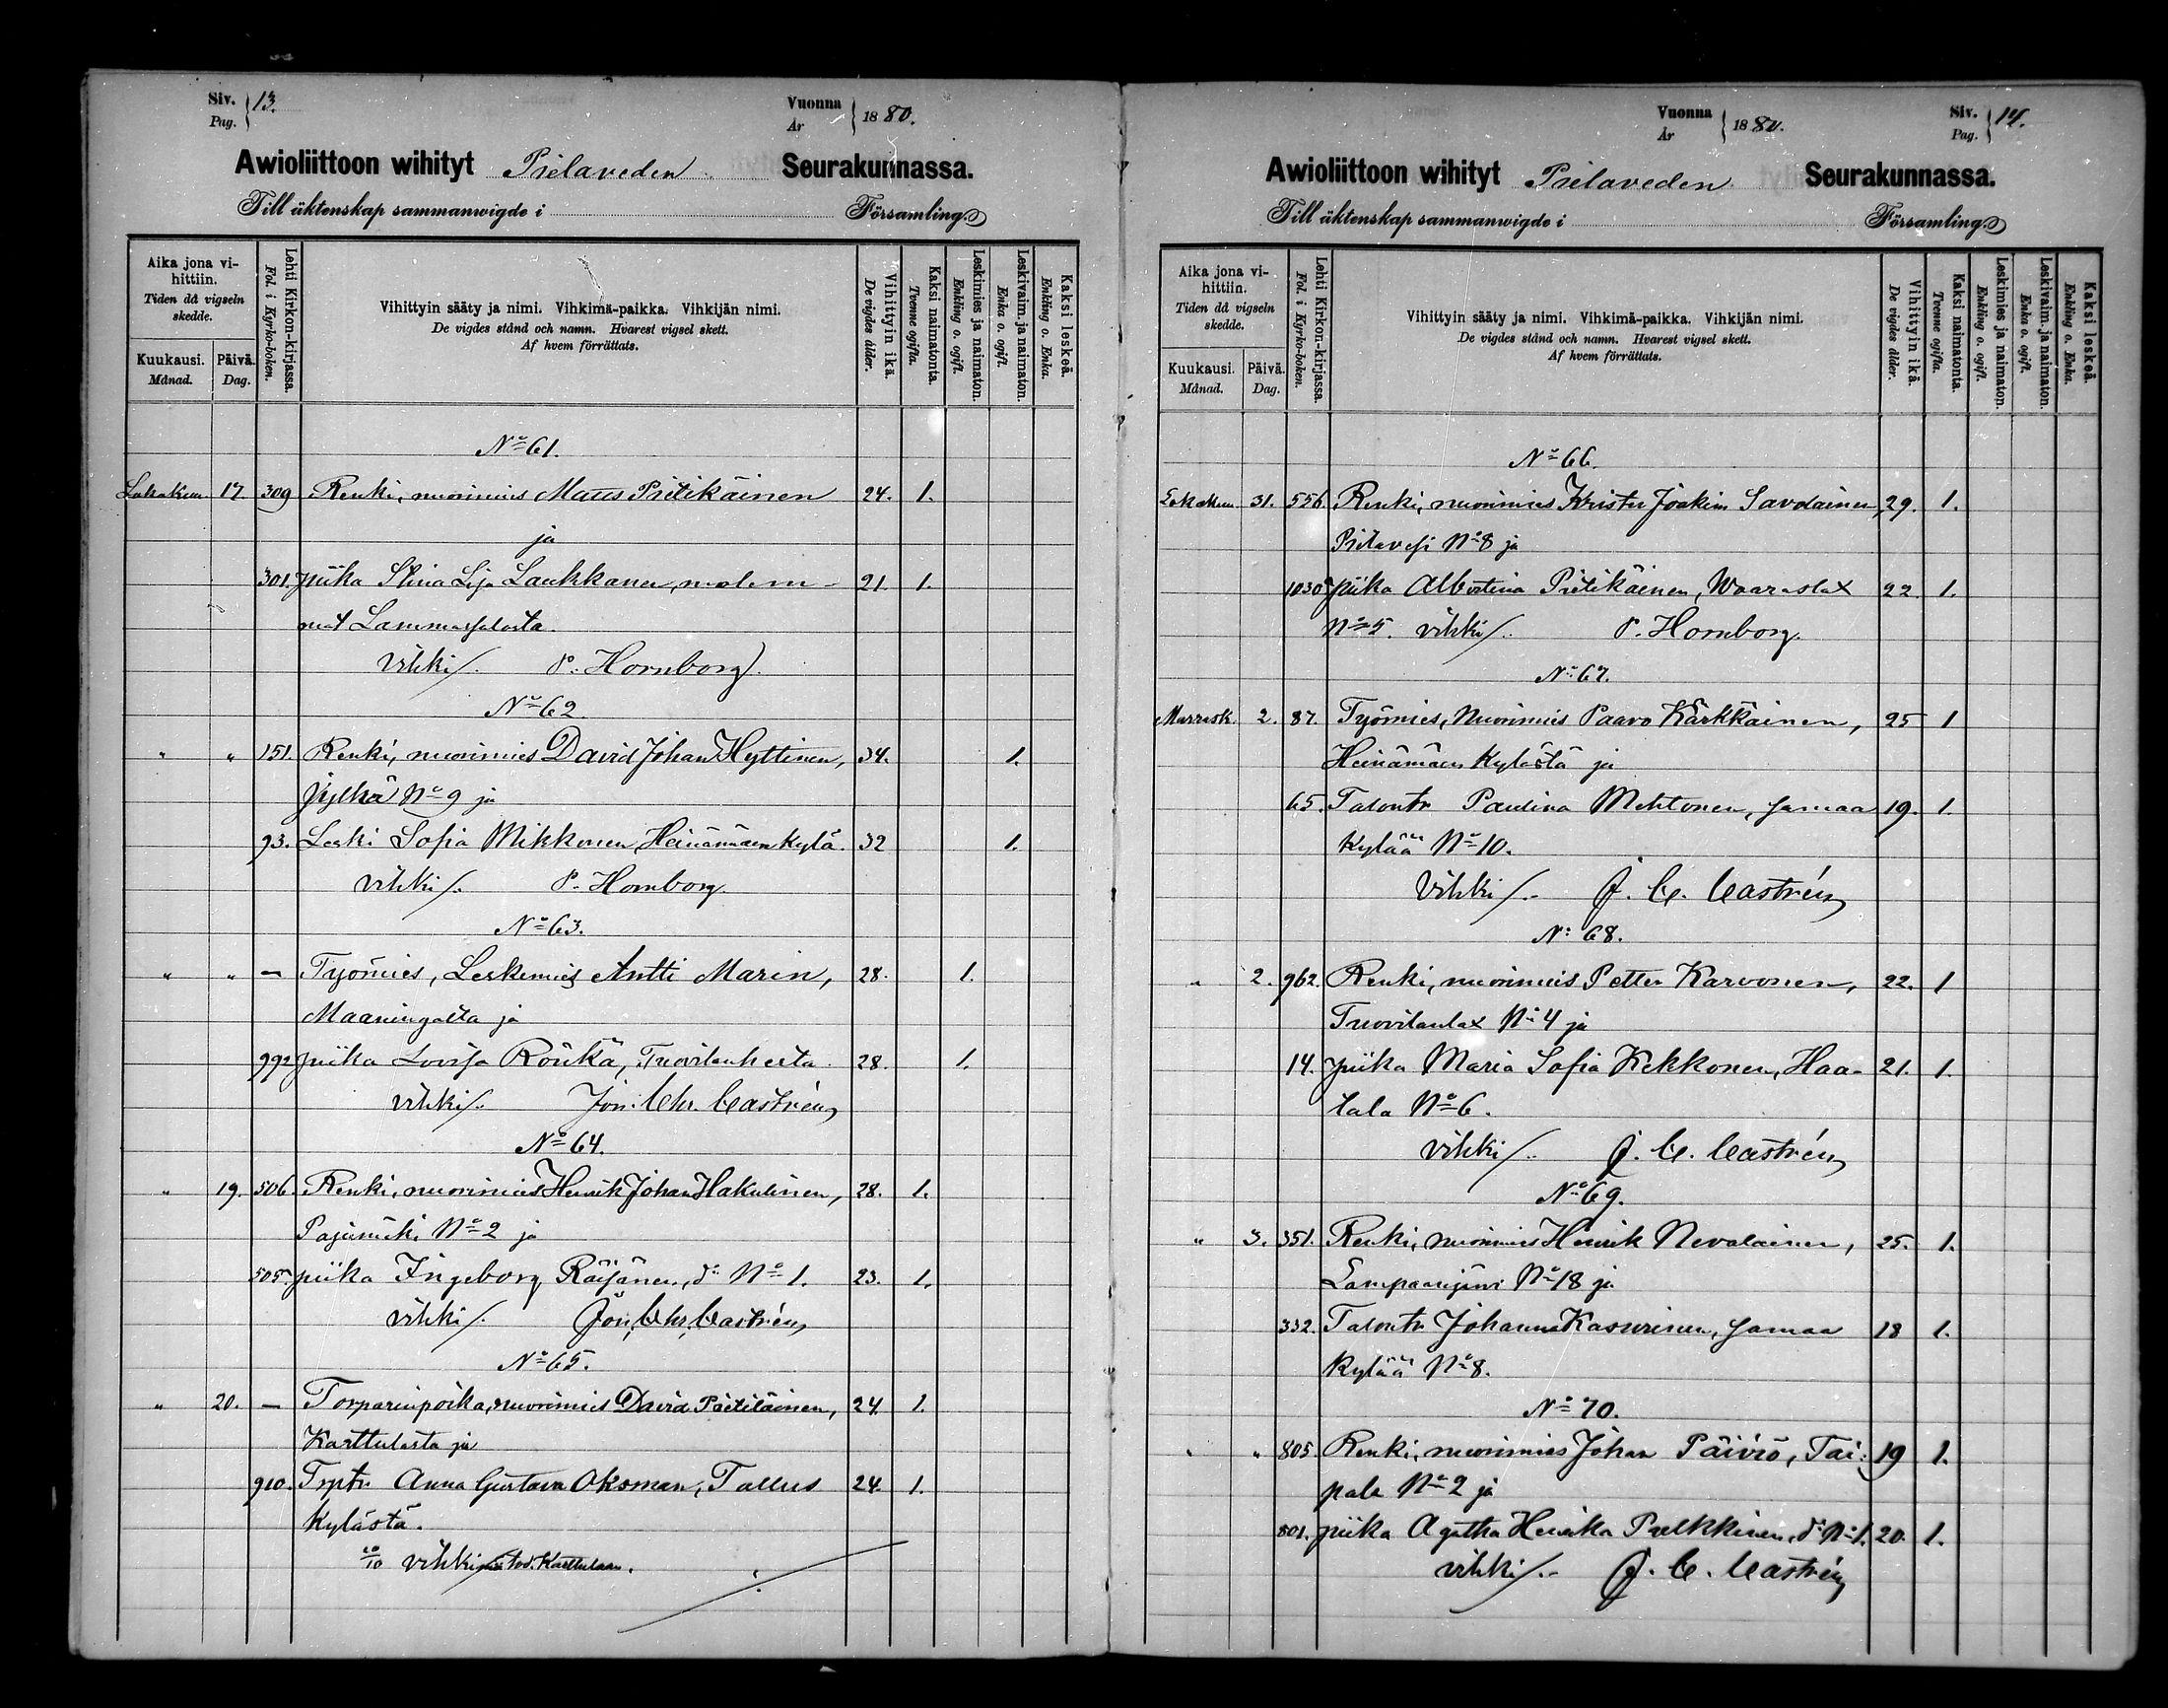 Siv. Pag. 13. Vuonna År 1880.
Awioliittoon wihityt Pielaveden Seurakunnassa.
Till äktenskap sammanwigde i Församling.
Aika jona vihittiin. Tiden då vigseln skedde.
Kuukausi. Månad. Päivä. Dag.
Lehti Kirkon-kirjassa. Fol. i Kyrko-boken.
Vihittyin sääty ja nimi. Vihkimä-paikka. Vihkijän nimi.
De vigdes stånd och namn. Hvarest vigsel skett.
Af hvem förrättats.
Vihittyin ikä. De vigdes ålder.
Kaksi naimatonta. Tvenne ogifta.
Leskimies ja naimaton. Enkling o. ogift.
Leskivaim. ja naimaton. Enka o. ogift.
Kaksi leskeä. Enkling o. Enka.
No 61.
Lokakuu. 17. 309 Renki, nuorimies Maus Pietikäinen 24. 1.
ja
301. piika Stina Lisa Laukkanen, molem- 21. 1.
mat Lammassalosta.
Vihki/. P. Hornborg.
No 62.
" " 151. Renki, nuorimies David Johan Hyttinen, 34. 1.
Jylhä No 9 ja
93. Leski Sofia Mikkonen, Heinämäen kylä. 32 1.
vihki/. P. Hornborg.
No 63.
" " — Työmies, Leskimies Antti Marin, 28. 1.
Maaningalta ja
992 piika Lovisa Rönkä, Tuovilanlasta. 28. 1.
vihki/. Joh. Chr. Castrén
No 64.
" 19. 506 Renki, nuorimies Henrik Johan Hakulinen, 28. 1.
Pajumäki No 2 ja
505. piika Ingeborg Räisänen, do No 1. 23. 1.
vihki/. Joh. Chr. Castrén
No 65.
" 20. — Torparinpoika, nuorimies David Pietiläinen, 24. 1.
Karttulasta ja
910. Trptr Anna Gustava Oksman, Tallus 24. 1.
kylästä.
20/10 vihki tod. Karttulaan.
Vuonna År 1880. Siv. Pag. 14.
Awioliittoon wihityt Pielaveden Seurakunnassa.
Till äktenskap sammanwigde i Församling.
Aika jona vihittiin. Tiden då vigseln skedde.
Kuukausi. Månad. Päivä. Dag.
Lehti Kirkon-kirjassa. Fol. i Kyrko-boken.
Vihittyin sääty ja nimi. Vihkimä-paikka. Vihkijän nimi.
De vigdes stånd och namn. Hvarest vigsel skett.
Af hvem förrättats.
Vihittyin ikä. De vigdes ålder.
Kaksi naimatonta. Tvenne ogifta.
Leskimies ja naimaton. Enkling o. ogift.
Leskivaim. ja naimaton. Enka o. ogift.
Kaksi leskeä. Enkling o. Enka.
No 66.
Lokakuu 31. 556. Renki, nuorimies Krister Joakim Savolainen, 29. 1.
Pielavesi No 8 ja
1030 piika Albertina Pietikäinen, Waaraslax 22 1.
No 5. vihki/. P. Hornborg.
No 67.
Marrask. 2. 87. Työmies, Nuorimies Paavo Kärkkäinen, 25 1
Heinämäen kylästä ja
65. Talontr Paulina Mehtonen, samaa 19. 1.
kylää No 10.
Vihki/. J. C. Castrén
No 68.
" 2. 962. Renki, nuorimies Petter Karvonen, 22. 1
Tuovilanlax No 4 ja
14. piika Maria Sofia Kekkonen, Haa- 21. 1.
tala No 6.
vihki/. J. C. Castrén
No 69.
" 3. 351. Renki, nuorimies Henrik Nevalainen, 25. 1.
Lampaanjärvi No 18 ja
332. Talontr Johanna Kasurinen, samaa 18 1.
kylää No 8.
No 70.
" " 805. Renki, nuorimies Johan Päiviö, Tai- 19 1.
pale No 2 ja
801. piika Agatha Henrika Pulkkinen, do No 1. 20. 1.
vihki/. J. C. Castrén